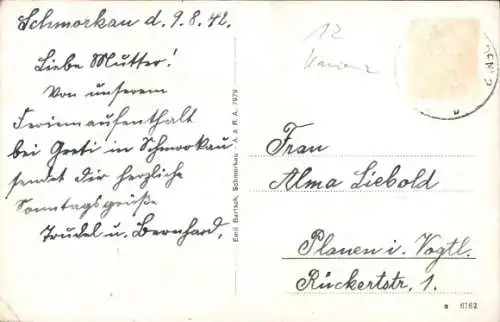 Schmorkau d. 9.8.42.
Liebe Mutter!
Von unserem
Ferienaufenthalt
bei Greti in Schmorkau
sendet Dir herzliche
Sonntagsgrüße
Trudel u. Bernhard.
Emil Bartsch, Schmorkau — A. & R. A. 7979
12
Frau
Alma Liebold
Plauen i. Vogtl.
Rückertstr. 1.
6162